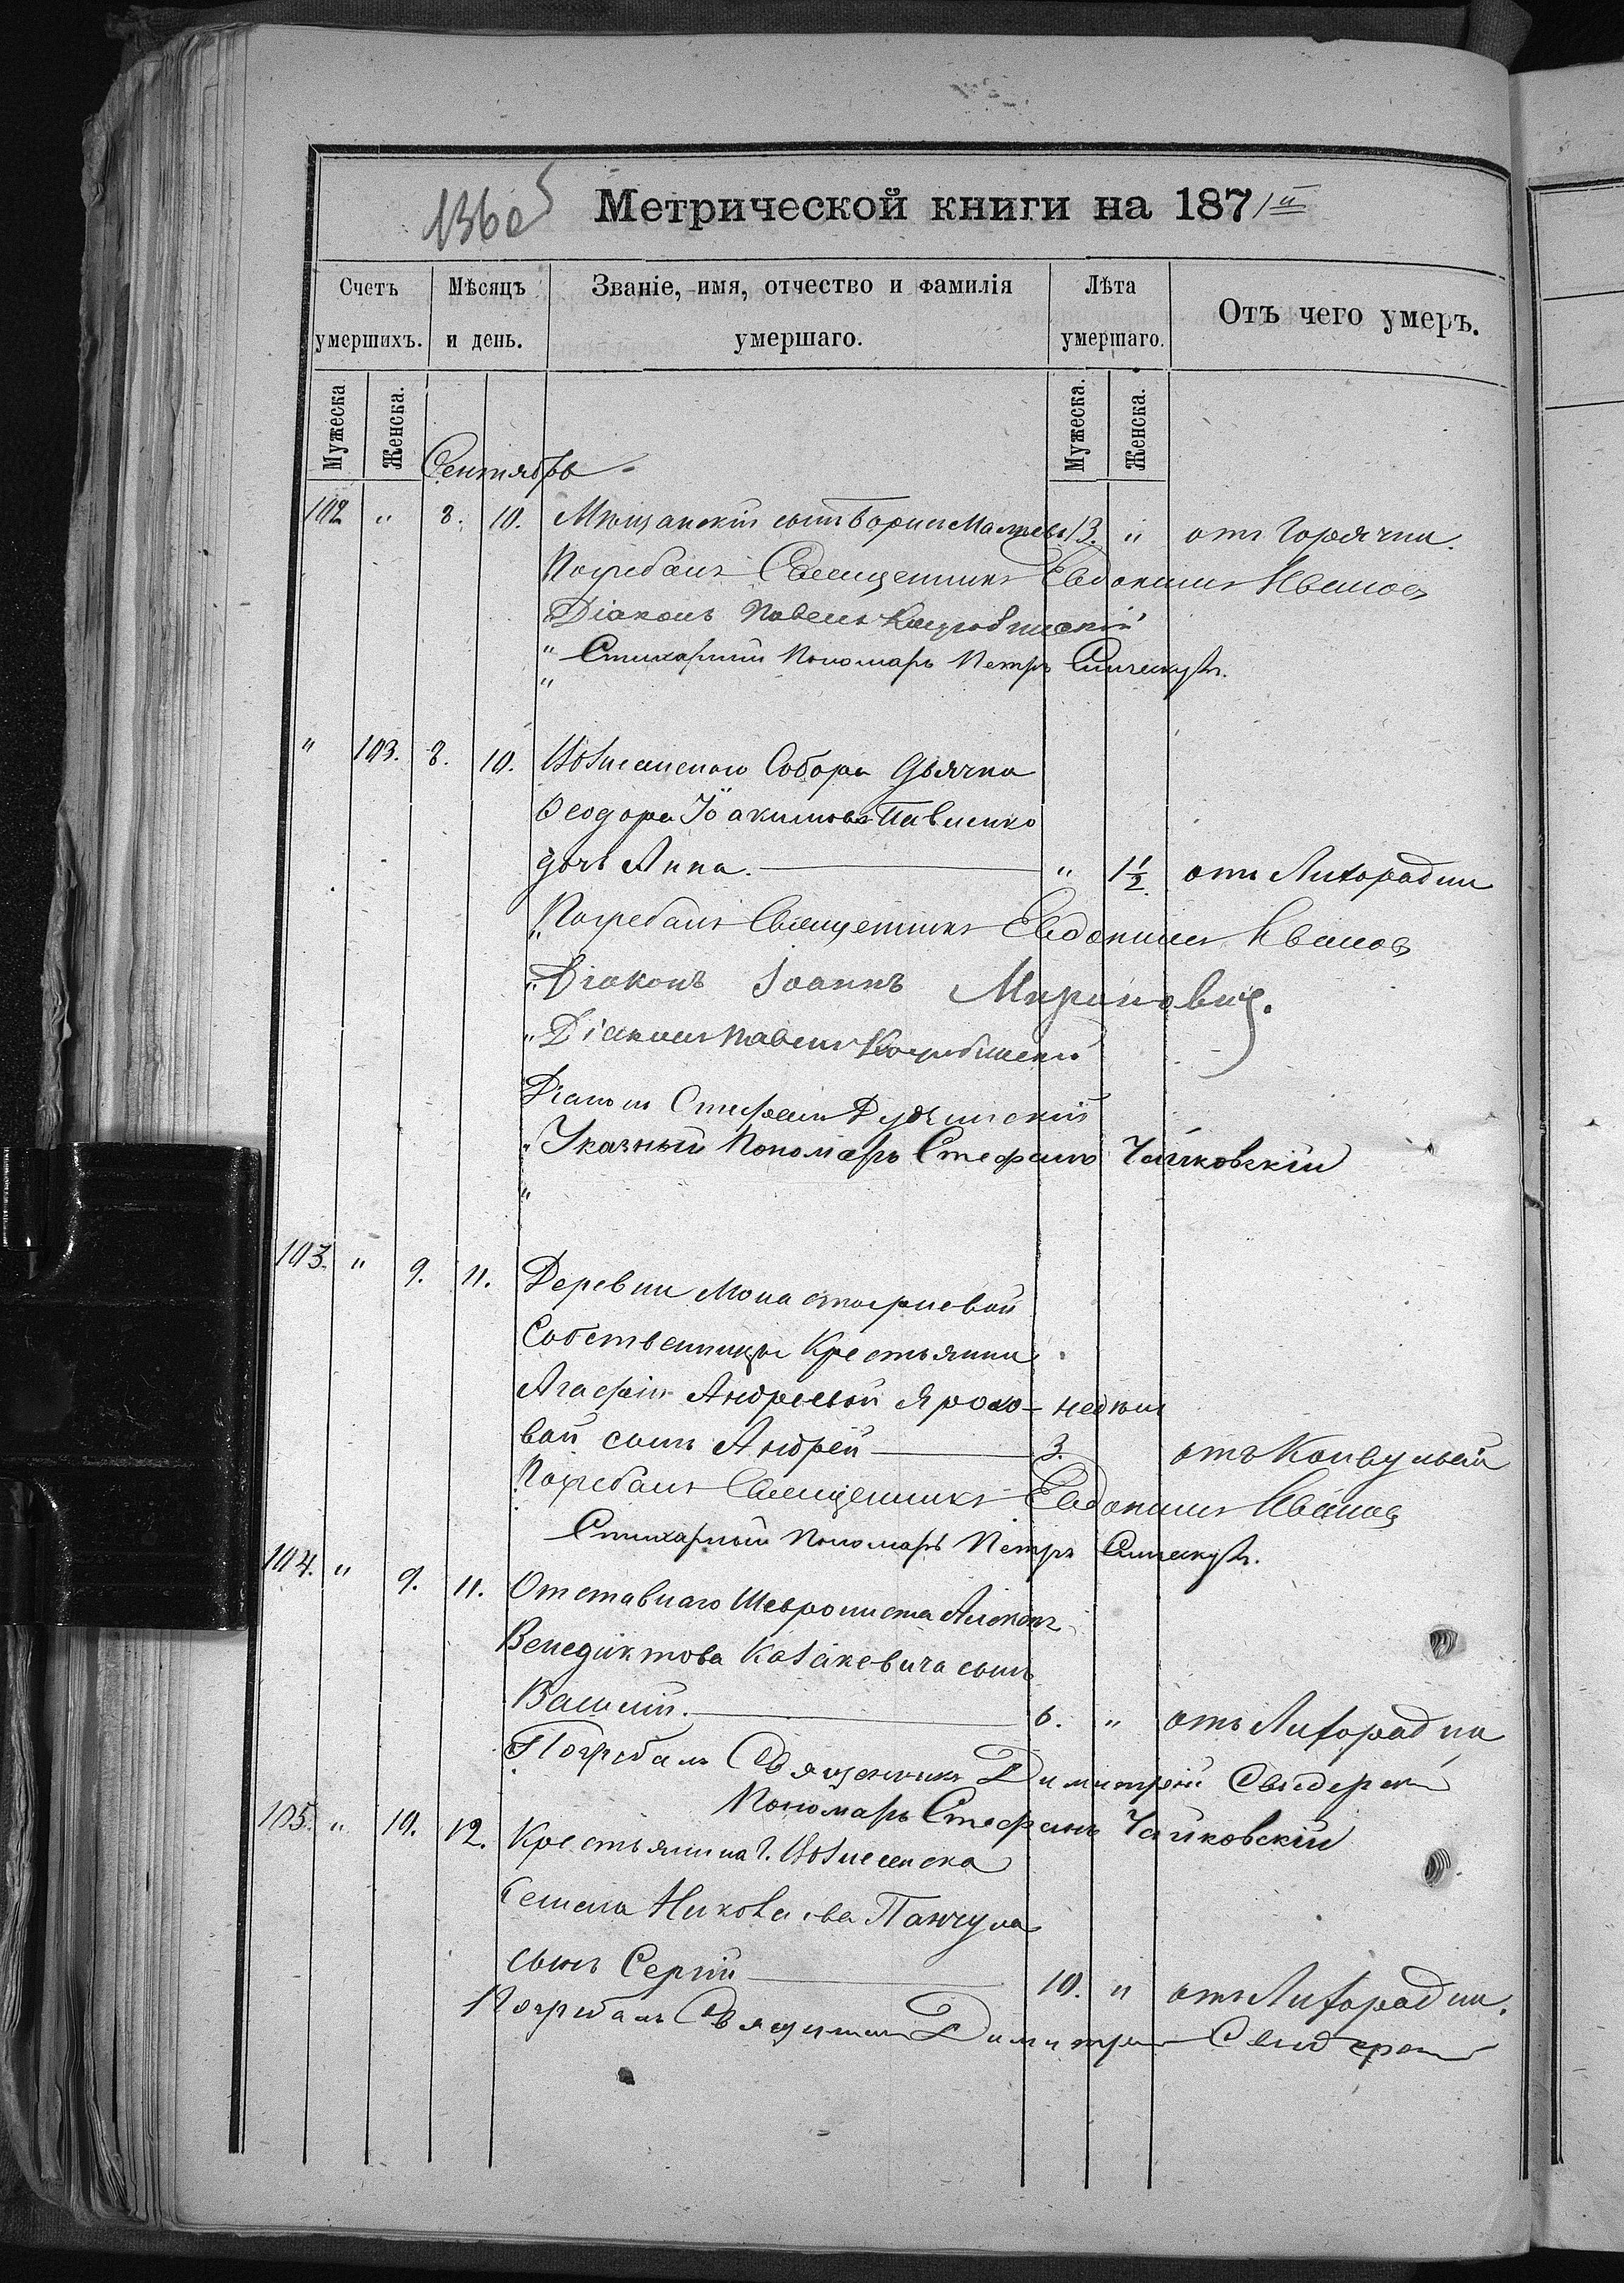 1360
Метрической книги на 1871й
Счетъ умершихъ.
Мѣсяцъ и день.
Званіе, имя, отчество и фамилія умершаго.
Лѣта умершаго.
Отъ чего умеръ.
Мужеска
Женска.
Мужеска.
Женска.
Сентябрь
102 " 8. 10. Мѣщанскій сынъ Борисъ 13. " отъ Горячки.
Погребалъ Священникъ Евдокимъ Ивановъ
Діаконъ Павелъ
" Стихарный Пономарь Петръ
"
" 103. 8. 10. Вознесенскаго Собора Дьячка
Ѳеодора Іоакимова Павленко
дочь Анна. " 1½. отъ Лихорадки
" Погребалъ Священникъ Евдокимъ Ивановъ
" Діаконъ Іоаннъ Мироновичъ.
" Діаконъ Павелъ
Діаконъ Стефанъ
" Указный Пономарь Стефанъ Чайковскій
"
103. " 9. 11. Деревни
Собственницы Крестьянки
Агафіи Андреевой Ярохо- недѣли
вой сынъ Андрей 3. отъ Конвульсій
Погребалъ Священникъ Евдокимъ Ивановъ
Стихарный Пономарь Петръ
104. " 9. 11. Отставнаго
Венедиктова Казакевича сынъ
Василій. 6. " отъ Лихорадки
Погребалъ Священникъ Димитрій Свидерскій
Пономарь Стефанъ Чайковскій
105. " 10. 12. Крестьянина г. Вознесенска
Семена Николаева
сынъ Сергій 10. " отъ Лихорадки.
Погребалъ Священникъ Димитрій Свидерскій